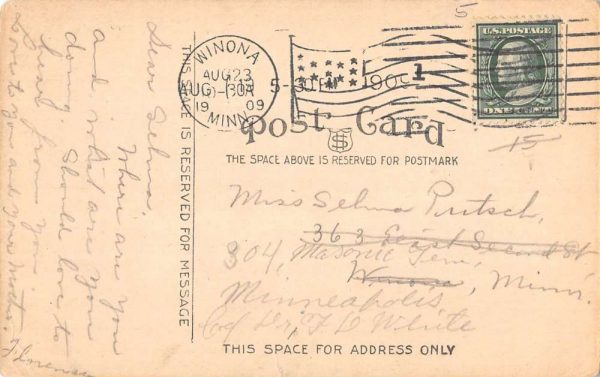 Dear Selma,
Where are you
and what are you
doing. Should love to
hear from you.
Love to you and your mother.
Florence
THIS SPACE IS RESERVED FOR MESSAGE
WINONA
AUG 23
19 09
MINN.
5-30 PM 1909
1
5
U.S. POSTAGE
ONE CENT
15
Post Card
THE SPACE ABOVE IS RESERVED FOR POSTMARK
Miss Selma Pritsch,
363 East Second St
304, Masonic Tem,
Winona, Minn.
Minneapolis
c/o Dr. F D White
THIS SPACE FOR ADDRESS ONLY